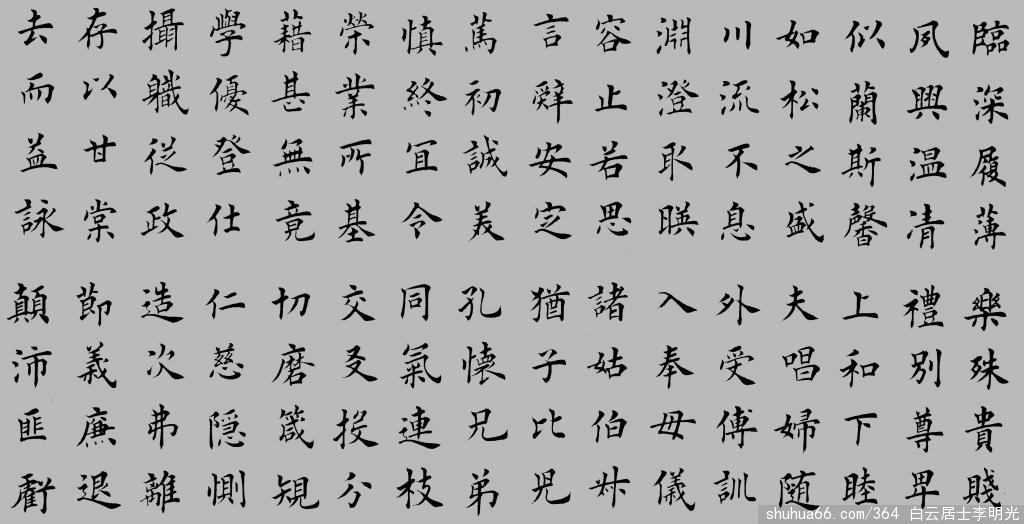 臨深履薄
夙興温凊
似蘭斯馨
如松之盛
川流不息
淵澄取暎
容止若思
言辭安定
篤初誠美
慎終宜令
榮業所基
藉甚無竟
學優登仕
攝職從政
存以甘棠
去而益詠
樂殊貴賤
禮別尊卑
上和下睦
夫唱婦随
外受傅訓
入奉母儀
諸姑伯叔
猶子比兒
孔懷兄弟
同氣連枝
交友投分
切磨箴規
仁慈隠惻
造次弗離
節義廉退
顛沛匪虧
shuhua66.com/364 白云居士李明光